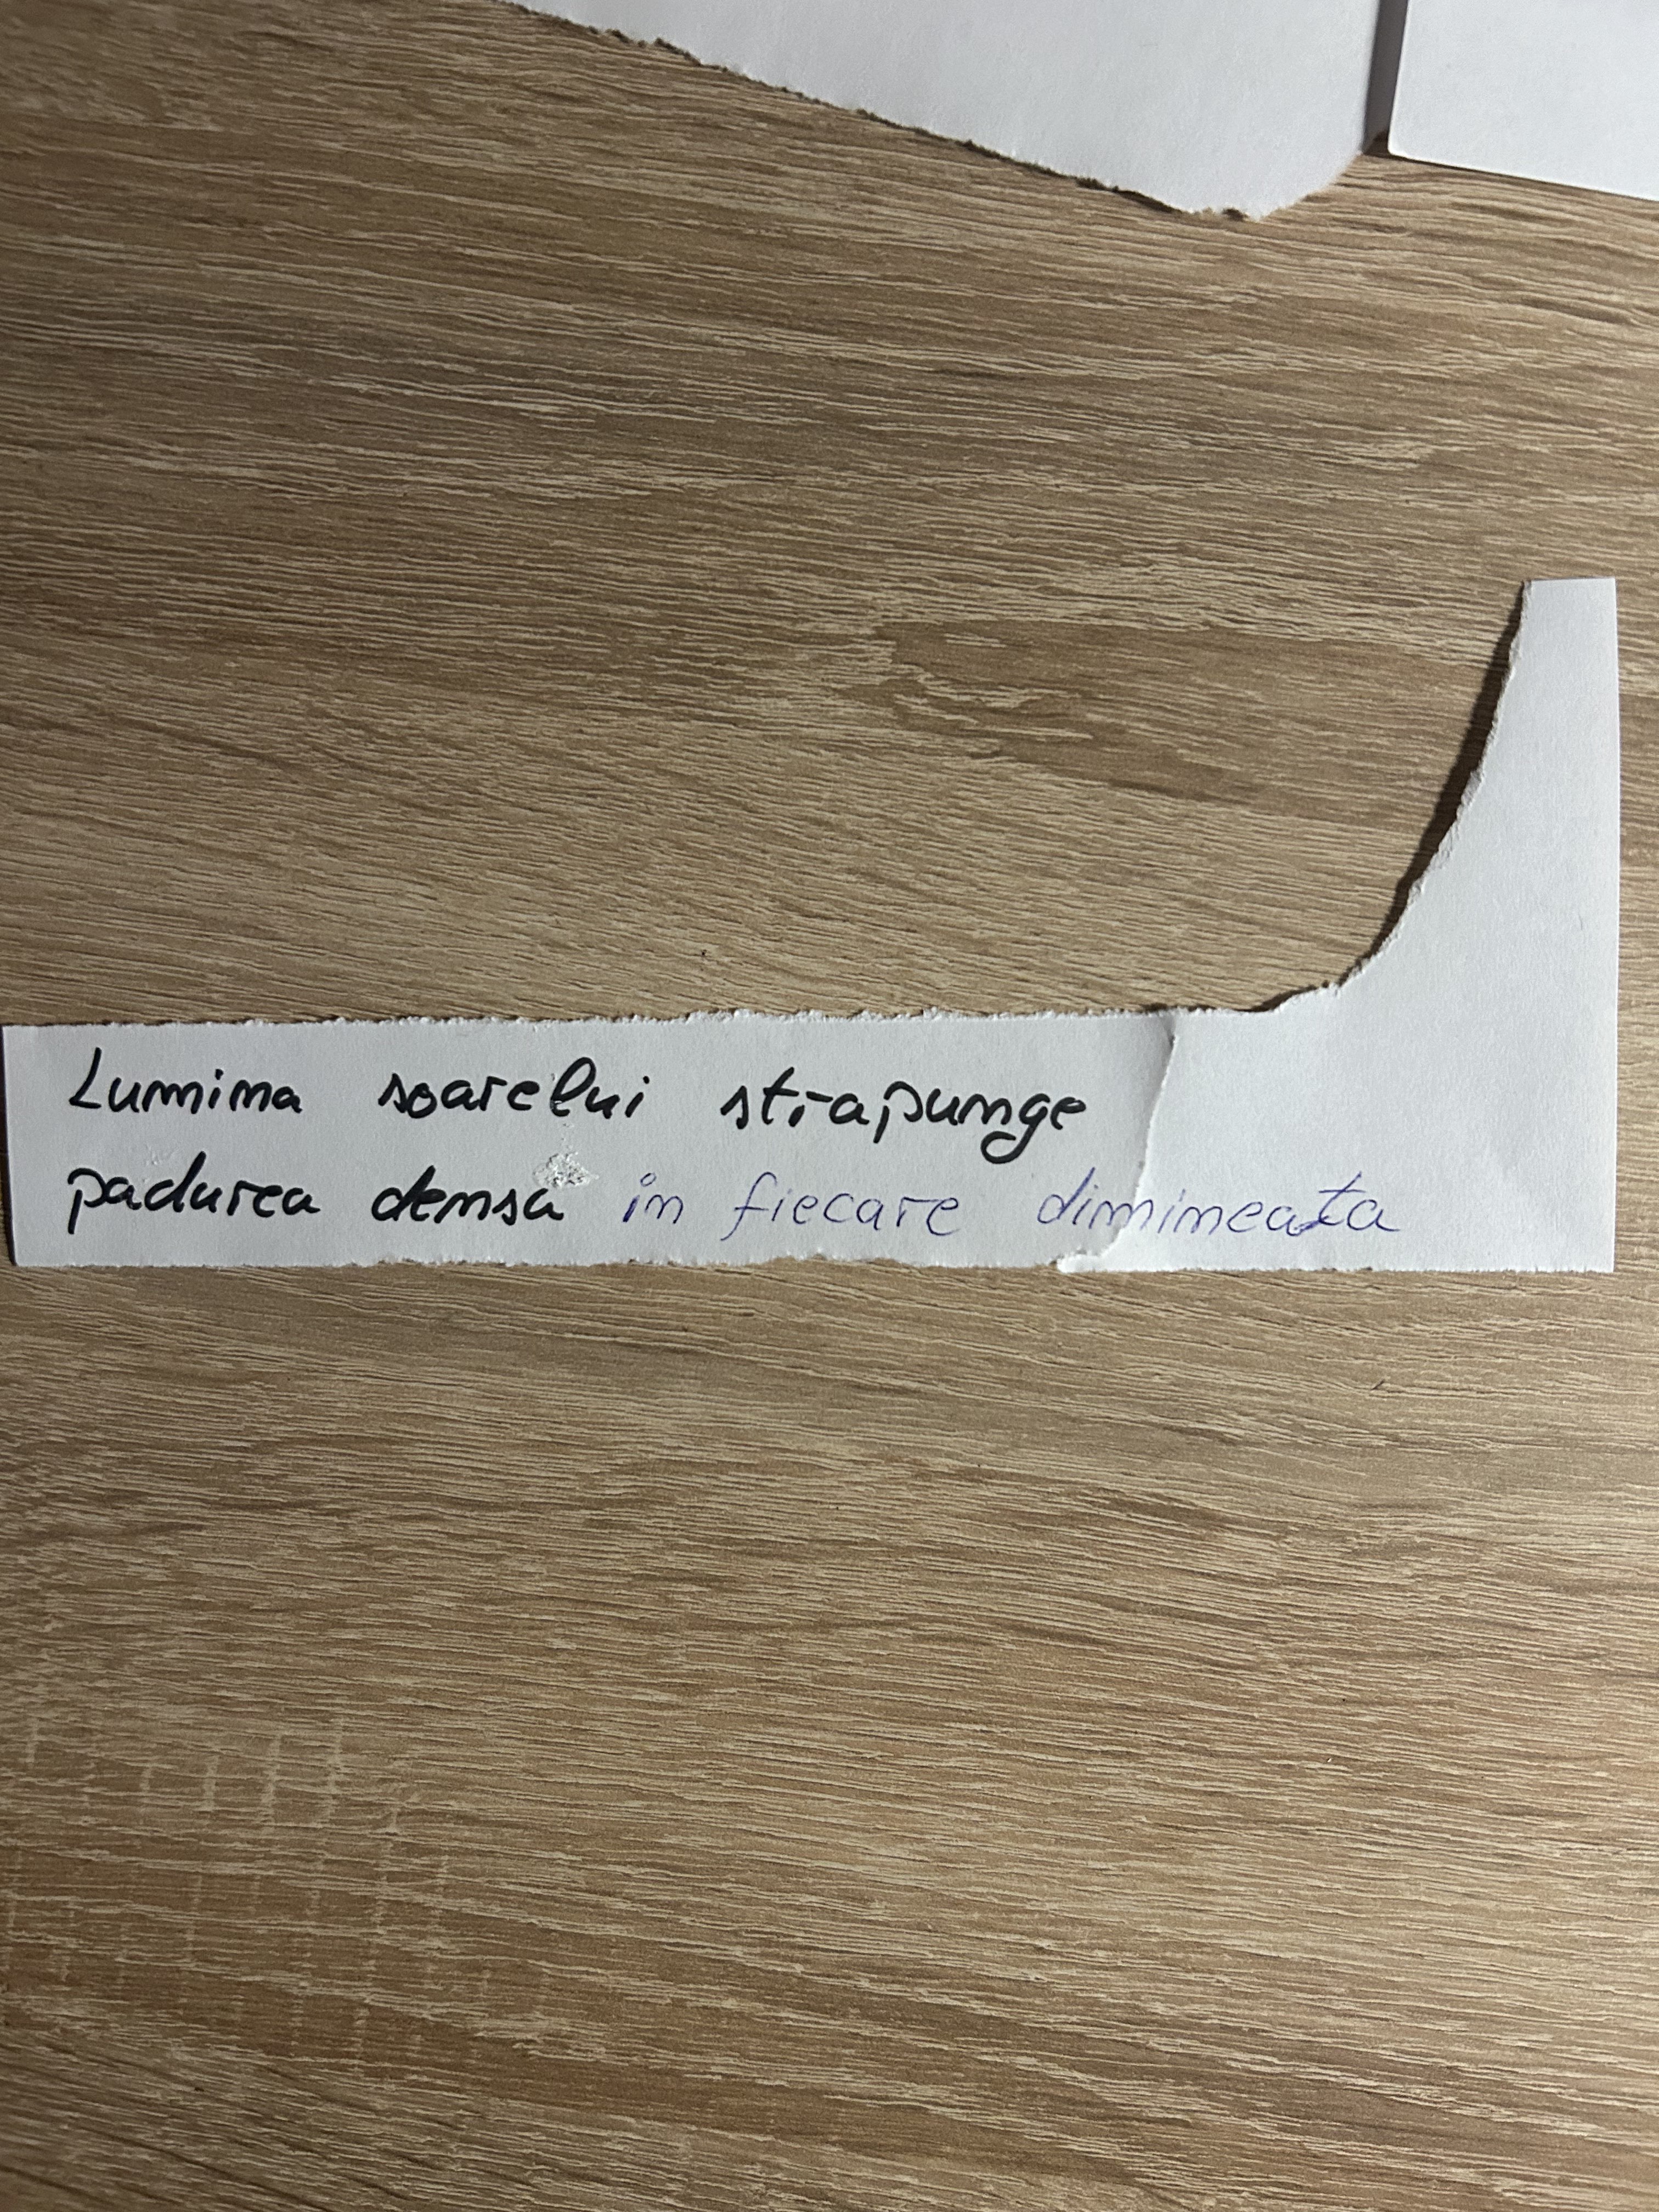 Lumina soarelui strapunge
padurea densa in fiecare dimineata